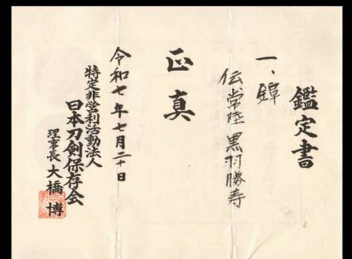 鑑定書
一、鐔
伝常陸黒羽勝寿
正真
令和七年七月二十日
特定非営利活動法人
日本刀剣保存会
理事長 大橋博